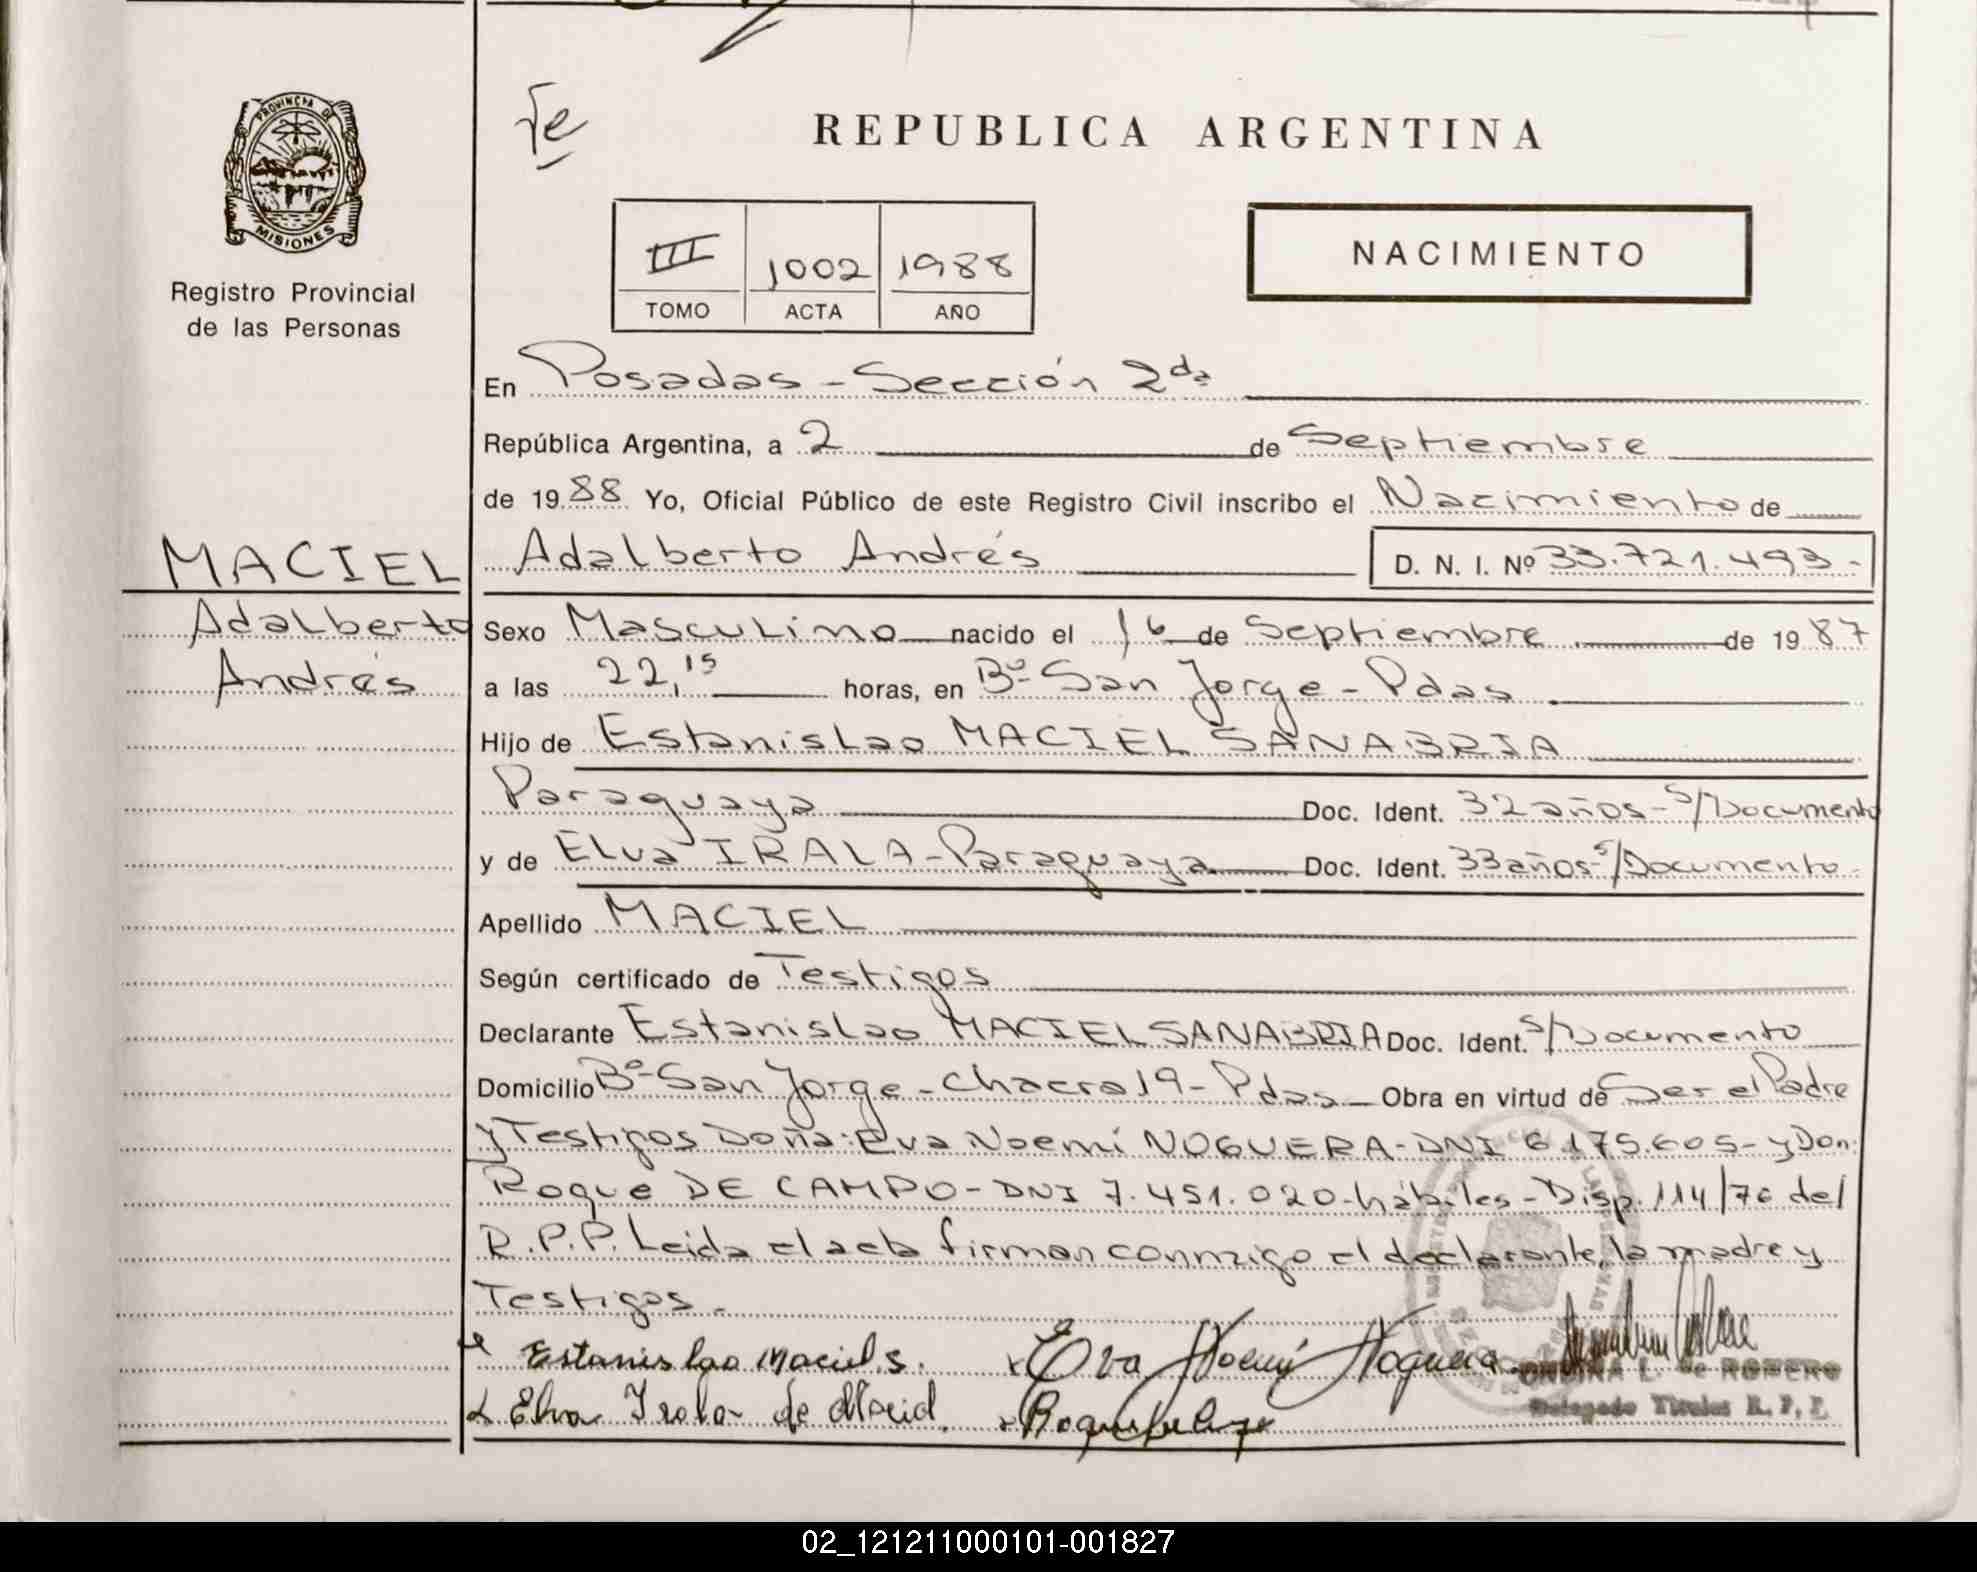 PROVINCIA DE
MISIONES
Registro Provincial
de las Personas
REPUBLICA ARGENTINA
III 1002 1988
TOMO ACTA AÑO
NACIMIENTO
En Posadas - Sección 2da
República Argentina, a 2 de Septiembre
de 1988 Yo, Oficial Público de este Registro Civil inscribo el Nacimiento de
MACIEL
Adalberto
Andrés
Adalberto Andrés D. N. I. Nº 33.721.493.-
Sexo Masculino nacido el 16 de Septiembre de 1987
a las 22,15 horas, en Bº San Jorge - Pdas
Hijo de Estanislao MACIEL SANABRIA
Paraguaya Doc. Ident. 32 años - S/Documento
y de Elva IRALA - Paraguaya Doc. Ident. 33 años - S/Documento.
Apellido MACIEL
Según certificado de Testigos
Declarante Estanislao MACIEL SANABRIA Doc. Ident. S/Documento
Domicilio Bº San Jorge - Chacra 19 - Pdas Obra en virtud de Ser el Padre
y Testigos Doña: Eva Noemí NOGUERA - DNI 6.175.605 - y Don:
Roque DE CAMPO - DNI 7.451.020 - hábiles - Disp. 114/76 del
R.P.P. Leida el acta firman conmigo el declarante, la madre y
Testigos.
Estanislao Maciel S. Eva Noemí Noguera
Elva Irala de Maciel
L. de ROMERO
Delegado Titular R. P. P.
02_121211000101-001827